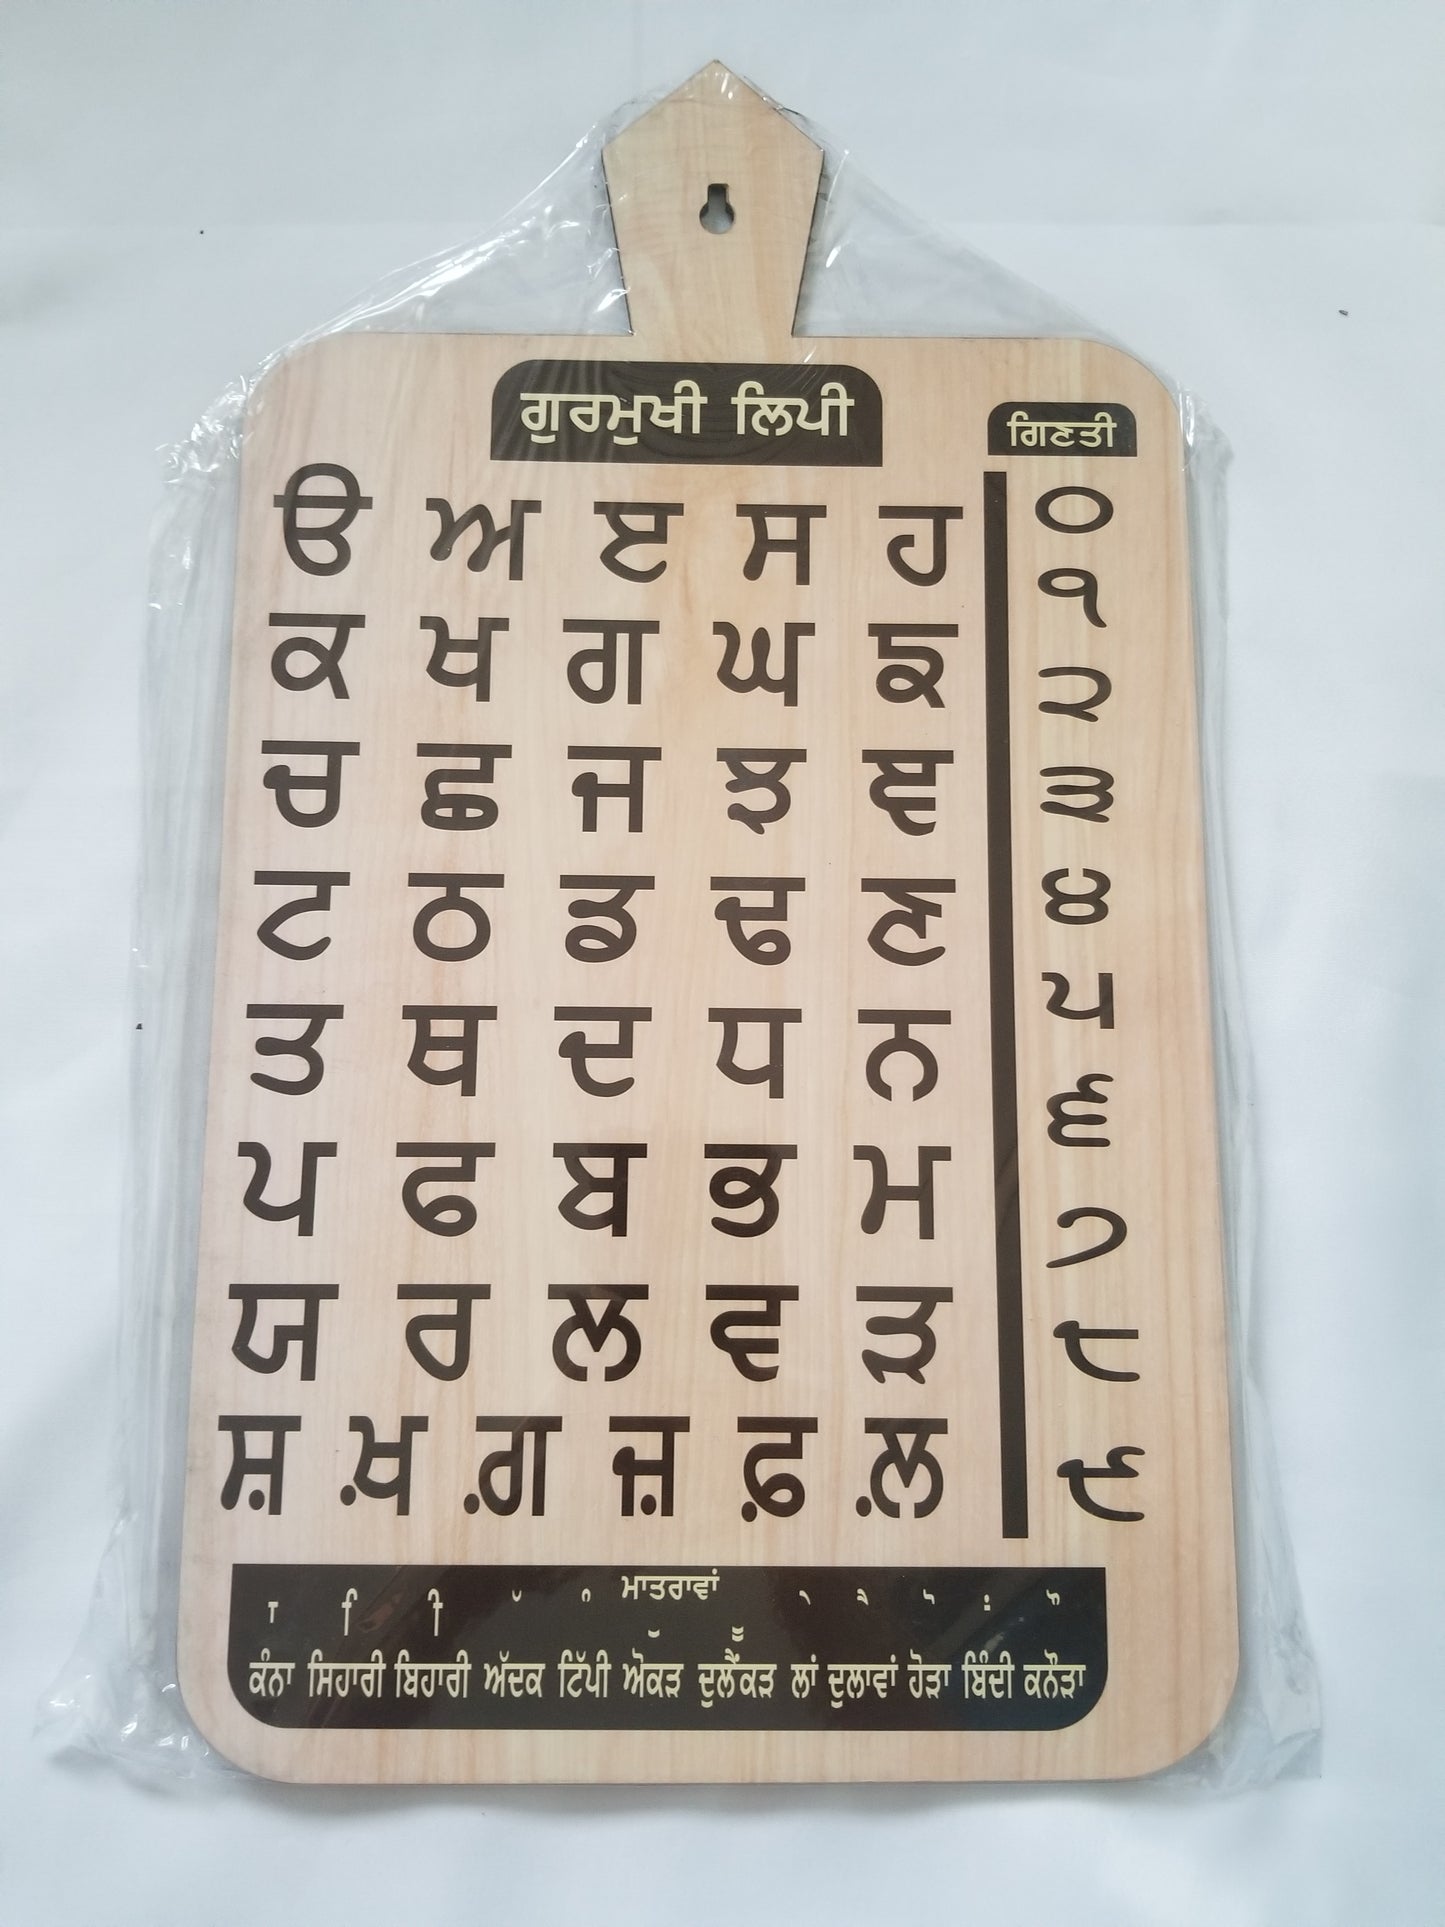 ਗੁਰਮੁਖੀ ਲਿਪੀ
ੳ ਅ ੲ ਸ ਹ
ਕ ਖ ਗ ਘ ਙ
ਚ ਛ ਜ ਝ ਞ
ਟ ਠ ਡ ਢ ਣ
ਤ ਥ ਦ ਧ ਨ
ਪ ਫ ਬ ਭ ਮ
ਯ ਰ ਲ ਵ ੜ
ਸ਼ ਖ਼ ਗ਼ ਜ਼ ਫ਼ ਲ਼
ਗਿਣਤੀ
੦
੧
੨
੩
੪
੫
੬
੭
੮
੯
ਮਾਤਰਾਵਾਂ
ਾ ਿ ੀ ੱ ੰ ੁ ੂ ੇ ੈ ੋ : ੌ
ਕੰਨਾ ਸਿਹਾਰੀ ਬਿਹਾਰੀ ਅੱਦਕ ਟਿੱਪੀ ਔਕੜ ਦੁਲੈਂਕੜ ਲਾਂ ਦੁਲਾਵਾਂ ਹੋੜਾ ਬਿੰਦੀ ਕਨੌੜਾ